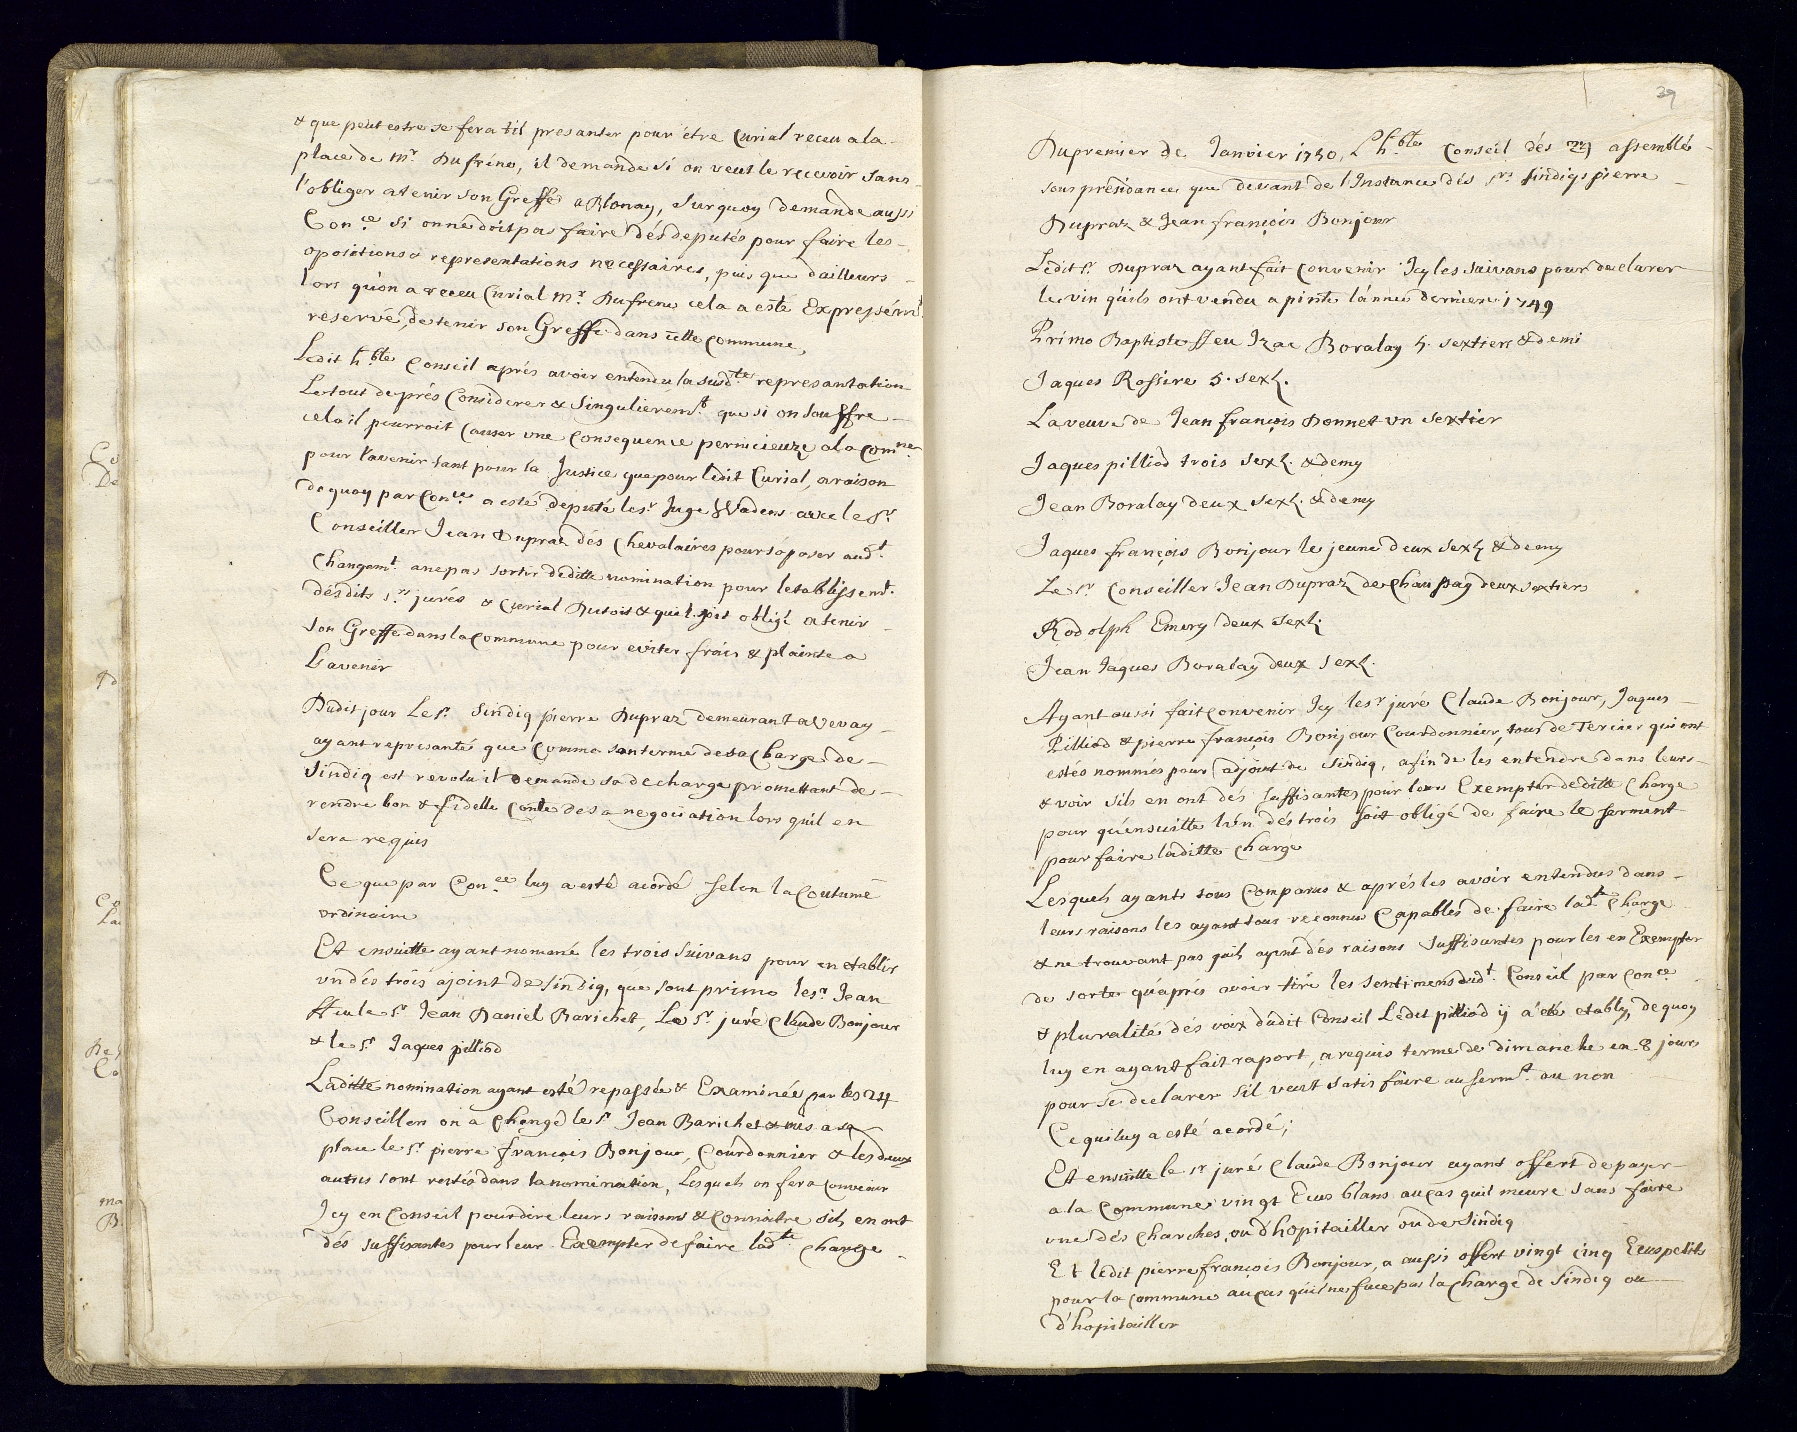 & que peut estre se fera t'il presanter pour être Curial receu a la
place de Mr. Dufréne, il demande si on veut le recevoir sans
l'obliger a tenir son Greffe a Blonay, surquoy demande aussi
Con.ce si on ne doit pas faire dés deputés pour faire les
opositions & representations necessaires, puis que dailleurs
lors qu'on a receu Curial Mr. Dufrene cela a esté Expressémt.
reservé, de tenir son Greffe dans cette commune,
Ledit h.ble Conseil aprés avoir entendu la susd.te represantation
Le tout de prés Considerer & Singulierem.t que si on souffre
cela il pourroit Causer une consequence pernicieuze a la Com.ne
pour l'avenir tant pour la Justice que pour ledit Curial, a raison
de quoy par Con.ce a esté deputé le sr. Juge de Wadens avec le Sr.
Conseiller Jean Dupraz dés Chevalaires pour s'oposer aud.t
Changem.t a ne pas sortir dedite nomination pour letablissem.t
désdits s.rs jurés & Curial Dutoit & quil soit obligé a tenir
son Greffe dans la Commune pour eviter frais & plainte a
L'avenir
Dudit jour Le sr. Sindiq pierre Dupraz demeurant a Vevay
ayant represanté que comme son terme de sa Charge de
Sindiq est revolu il demande sa decharge promettant de
rendre bon & fidelle conte de sa negotiation lors quil en
sera requis
Ce que par Con.ce luy a esté acordé selon la Coutume
ordinaire
Et ensuitte ayant nommé les trois suivans pour en etablir
un dés trois ajoint de Sindiq, que sont primo le sr. Jean
ffeu le Sr. Jean Daniel Barichet, Le Sr. juré Claude Bonjour
& le Sr. Jaques pilliod
Laditte nomination ayant esté repassée & Examinée par les 24
Conseillers on a changé le Sr. Jean Barichet & mis a sa
place le Sr. pierre françois Bonjour, Courdonnier & les deux
autres sont restés dans la nomination, Lesquels on fera convenir
Icy en Conseil pour dire leurs raisons & Connoitre sils en ont
dés suffisantes pour leur Exempter de faire lad.te Charge
39
Du premier de Janvier 1750, L'h.ble Conseil dés 24 assemblé
sous présidance que devant de l'Instance dés Srs. Sindiqs pierre
Dupraz & Jean françois Bonjour
Lédit Sr. Dupraz ayant fait convenir Icy les suivans pour declarer
le vin quils ont vendu a pinte lánnée derniere 1749
Primo Baptiste ffeu Izac Boralay 5. sextiers & demi
Jaques Rossire 5. sext.
La veuve de Jean françois Donnet un Sextier
Jaques pilliod trois sext. & demy
Jean Boralay deux sext. & demy
Jaques françois Bonjour le jeune deux sext. & demy
Le Sr. Conseiller Jean Dupraz de Chaupay deux sextiers
Rodolph Emery deux sext.
Jean Jaques Boralay deux sext.
Ayant aussi fait convenir Icy le sr. juré Claude Bonjour, Jaques
Pilliod & pierre françois Bonjour Courdonnier, tous de Tercier qui ont
estés nommés pour l'ajoint de Sindiq, afin de les entendre dans leurs
& voir sils en ont dés suffisantes pour leur Exempter dédite Charge
pour qu'ensuitte l'un dés trois soit obligé de faire le serment
pour faire laditte Charge
Lesquels ayants tous Comparus & aprés les avoir entendus dans
leurs raisons les ayant tous reconnu Capables de faire lad.te Charge
& ne trouvant pas quils ayent dés raisons suffisantes pour les en Exempter
de sorte qu'aprés avoir tiré les sentimens dud.t Conseil par Con.ce
& pluralité dés voix dudit Conseil Lédit pilliod ij a été etably, de quoy
luy en ayant fait raport, a requis terme de dimanche en 8 jours
pour se declarer sil veut satisfaire au serm.t ou non
Ce qui luy a esté acordé;
Et ensuitte le sr. juré Claude Bonjour ayant offert de payer
a la Commune vingt Ecus blans au cas quil meure sans faire
une dés Charches, ou d'hopitailler ou de Sindiq
Et lédit pierre françois Bonjour, a aussi offert vingt cinq Ecus petits
pour la commune au cas qu'il ne face pas la Charge de Sindiq ou
d'hopitailler